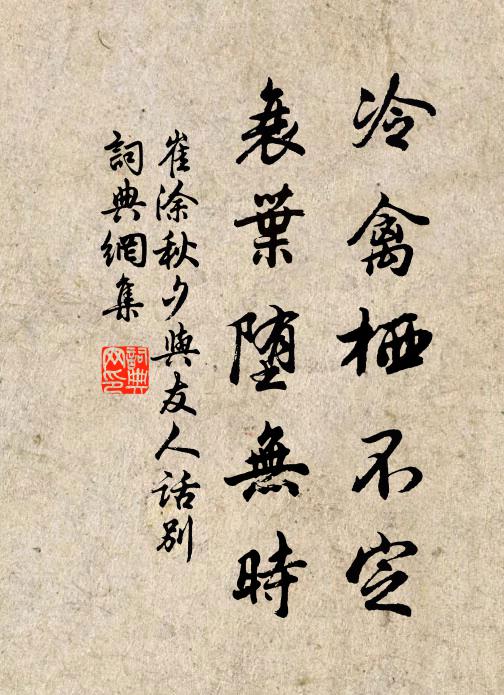 冷禽栖不定
衰葉堕無時
崔涂秋夕與友人话别
詞典網集
詞典网印